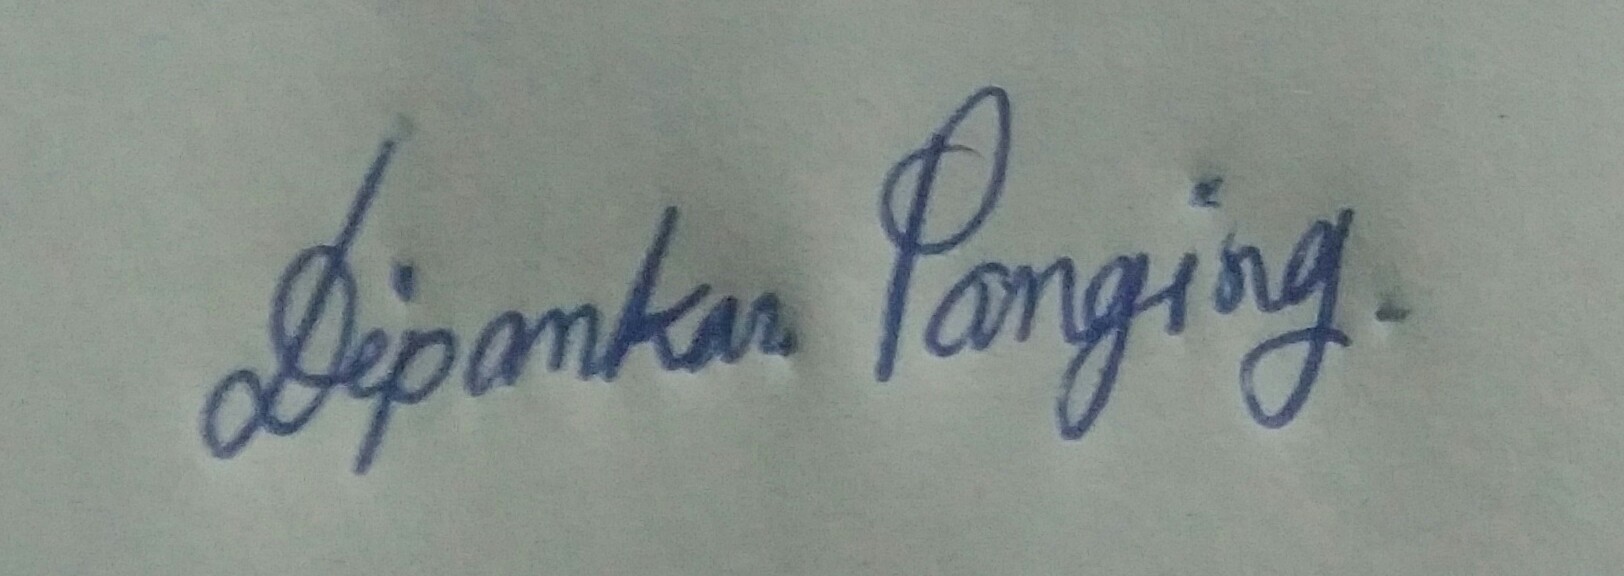 Dipankar Panging.